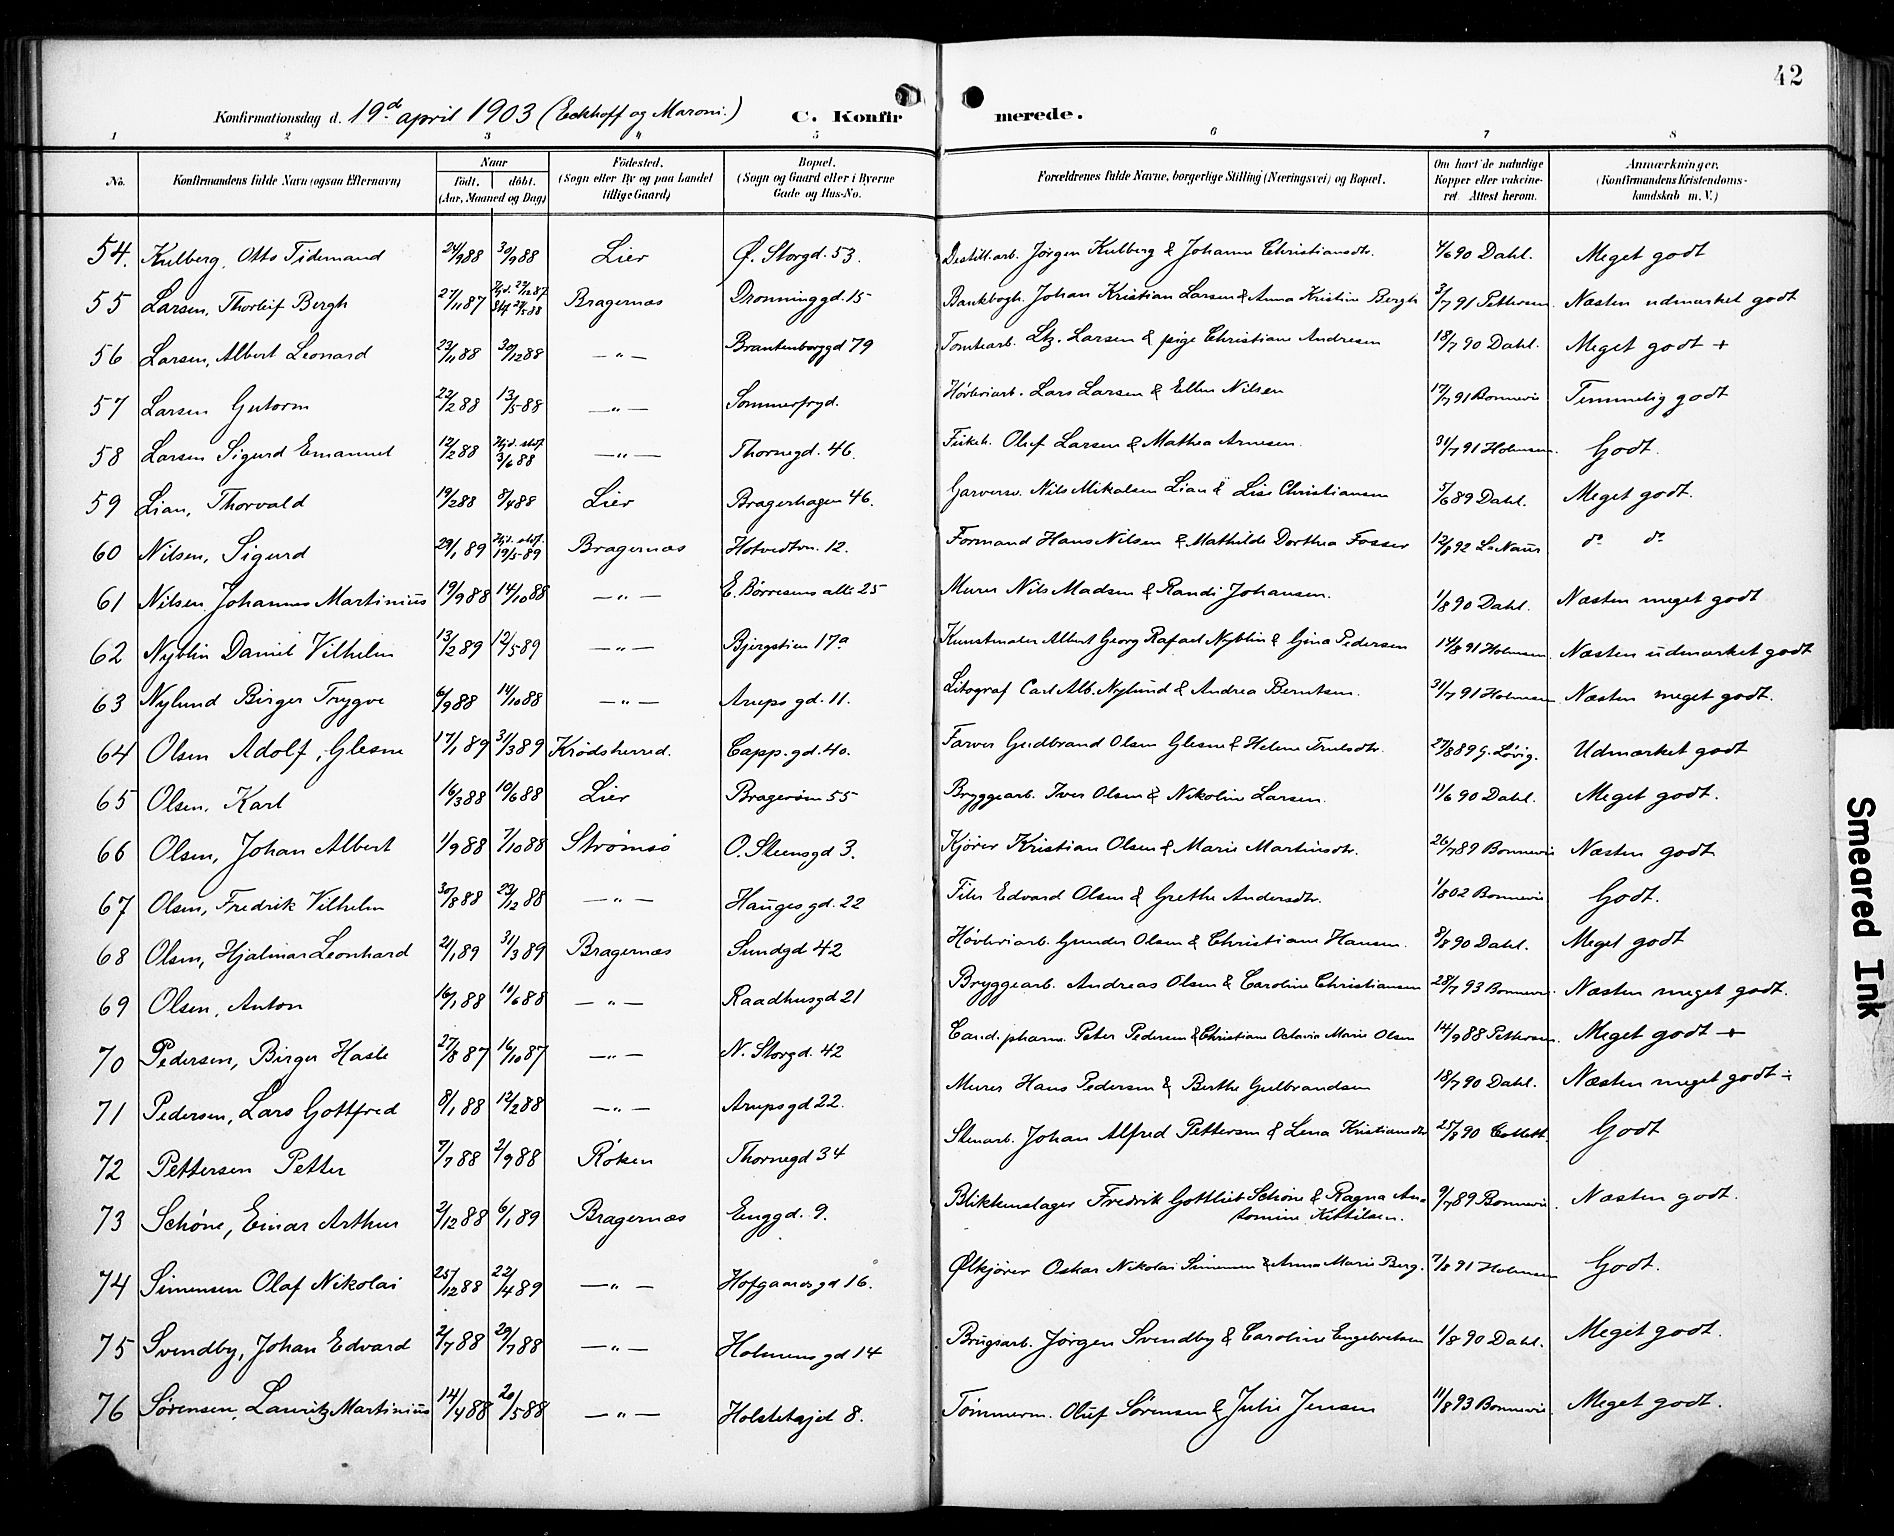 42
Konfirmationsdag d. 19d april 1903 (Eckhoff og Maroni.) C. Konfirmerede.
1 2 3 4 5 6 7 8
No. Konfirmandens fulde Navn (ogsaa Efternavn) Naar født. døbt. (Aar, Maaned og Dag) Fødested. (Sogn eller By og paa Landet tillige Gaard) Bopæl. (Sogn og Gaard eller i Byerne Gade og Hus-No. Forældrenes fulde Navne, borgerlige Stilling (Næringsvei) og Bopæl. Om havt de naturlige Kopper eller vakcineret Attest herom. Anmærkninger. (Konfirmandens Kristendomskundskab m. V.)
54. Kulberg, Otto Tidemand 24/9 88 30/9 88 Lier Ø. Storgd. 53. Destill.arb. Jørgen Kulberg & Johanne Christiansdtr. 4/6 90 Dahl. Meget godt
55 Larsen, Thorleif Bergh 27/11 87 Bragernæs Dronninggd. 15 Bankbogh. Johan Kristian Larsen & Anna Kristine Bergh 3/7 91 Pettersen. Næsten udmærket godt
56 Larsen, Albert Leonard 23/11 88 30/12 88 — " — Brantenborggd 79 Tomtearb. Ltz. Larsen & pige Christiane Andresen 18/7 90 Dahl. Meget godt +
57 Larsen Gutorm 22/2 88 13/5 88 — " — Sommerfryd. Høvleriarb. Lars Larsen & Ellen Nilsen 17/7 91 Bonnevie Temmelig godt
58 Larsen Sigurd Emanuel 12/2 88 Hjd. stf. 3/6 88 — " — Thornegd. 46. Fiskeh. Oluf Larsen & Mathea Arnesen. 31/7 91 Holmsen. Godt.
59 Lian, Thorvald 19/2 88 8/4 88 Lier Bragerhagen 46. Garversv. Nils Mikalsen Lian & Lise Christiansen 5/6 89 Dahl. Meget godt.
60 Nilsen, Sigurd 29/1 89 Hjd. stf. 19/5 89 Bragernæs Hotvedtvn. 12. Formand Hans Nilsen & Mathilde Dorthea Fosser 12/8 92 do do
61 Nilsen, Johannes Martinius 19/9 88 14/10 88 — " — E. Børresens alle 25 Murer Nils Madsen & Randi Johansen. 1/8 90 Dahl. Næsten meget godt
62 Nyblin Daniel Vilhelm 13/2 89 12/5 89 — " — Bjergstien 17a Kunstmaler Albert Georg Rafael Nyblin & Gina Pedersen 14/8 91 Holmsen. Næsten udmærket godt
63 Nylund Birger Trygve 6/9 88 14/10 88 — " — Arups gd. 11. Litograf Carl Alb. Nylund & Andrea Berntsen. 31/7 91 Holmsen Næsten meget godt.
64 Olsen Adolf, Glesne 17/1 89 31/3 89 Krødsherred. Capp. gd. 40. Farver Gudbrand Olsen Glesne & Helene Trulsdtr. 27/8 89 G. Løvig. Udmærket godt
65 Olsen, Karl 16/3 88 10/6 88 Lier Bragerøen 55 Bryggearb. Iver Olsen & Nikoline Larsen. 11/6 90 Dahl. Meget godt.
66 Olsen, Johan Albert 1/9 88 7/10 88 Strømsø O. Steensgd 3. Kjører Kristian Olsen & Marie Martinsdtr. 26/7 89 Bonnevie Næsten godt
67 Olsen, Fredrik Vilhelm 30/8 88 23/12 88 — " — Hauges gd. 22 Filer Edvard Olsen & Grethe Andersdtr. 1/8 02 Bonnevie Godt.
68 Olsen, Hjalmar Leonhard 2/1 89 31/3 89 Bragernæs Sundgd 42 Høvleriarb. Gunder Olsen & Christiane Hansen. 8/8 90 Dahl. Meget godt
69 Olsen, Anton 16/1 88 10/6 88 — " — Raadhusgd 21 Bryggearb. Andreas Olsen & Caroline Christiansen 28/7 93 Bonnevie. Næsten meget godt.
70 Pedersen, Birger Hasle 27/8 87 16/10 87 — " — N. Storgd. 42 Cand. pharm. Peter Pedersen & Christiane Octavia Marie Olsen 14/9 88 Pettersen. Meget godt +
71 Pedersen, Lars Gottfred 8/1 88 12/2 88 — " — Arupsgd 22. Murer Hans Pedersen & Berthe Gulbrandsen 18/7 90 Dahl. Næsten meget godt ÷
72 Pettersen Petter 7/7 88 2/9 88 Røken Thornegd 34 Stenarb. Johan Alfred Pettersen & Lena Kristiansdtr 25/8 90 Collett. Godt
73 Schøne, Einar Arthur 2/12 88 6/1 89 Bragernæs Enggd. 9. Blikkenslager Fredrik Gottlieb Schøne & Ragna An-
tomine Kittilsen. 9/7 89 Bonnevie. Næsten godt.
74 Simensen Olaf Nikolai 25/12 88 22/4 89 — " — Hofgaards gd 16. Ølkjører Oskar Nikolai Simensen & Anna Marie Berg. 7/8 91 Holmsen Godt.
75 Svendby, Johan Edvard 2/7 88 29/7 88 — " — Holmens gd 14 Brugsarb. Jørgen Svendby & Caroline Engebretsen 1/8 90 Dahl. Meget godt.
76 Sørensen, Lauritz Martinius 14/4 88 20/5 88 — " — Holstehøjet 8. Tømmerm. Oluf Sørensen & Julie Jensen 11/8 93 Bonnevie. Meget godt.
Smeared Ink